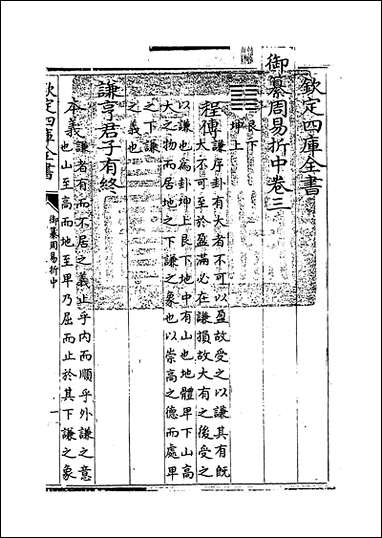 欽定四庫全書
御纂周易折中卷三
艮下
坤上
程傳
謙序卦有大者不可以盈故受之以謙其有既
大不可至於盈滿必在謙損故大有之後受之
以謙也為卦坤上艮下地中有山也地體卑下山高
大之物而居地之下謙之象也以崇高之德而處卑
之下謙
之義也
謙亨君子有終
本義
謙者有而不居之義止乎內而順乎外謙之意
也山至高而地至卑乃屈而止於其下謙之象
欽定四庫全書
御纂周易折中
一